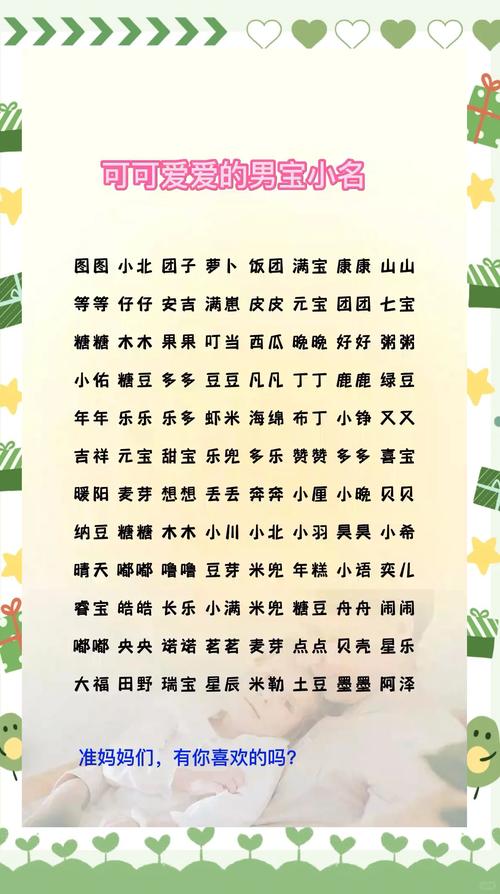 可可爱爱的男宝小名
图图 小北 团子 萝卜 饭团 满宝 康康 山山
等等 仔仔 安吉 满崽 皮皮 元宝 团团 七宝
糖糖 木木 果果 叮当 西瓜 晚晚 好好 粥粥
小佑 糖豆 多多 豆豆 凡凡 丁丁 鹿鹿 绿豆
年年 乐乐 乐多 虾米 海绵 布丁 小铮 又又
吉祥 元宝 甜宝 乐兜 多乐 赞赞 多多 喜宝
暖阳 麦芽 想想 丢丢 奔奔 小厘 小晚 贝贝
纳豆 糖糖 木木 小川 小北 小羽 昊昊 小希
晴天 嘟嘟 噜噜 豆芽 米兜 年糕 小语 奕儿
睿宝 皓皓 长乐 小满 米兜 糖豆 舟舟 闹闹
嘟嘟 央央 诺诺 茗茗 麦芽 点点 贝壳 星乐
大福 田野 瑞宝 星辰 米勒 土豆 墨墨 阿泽
准妈妈们，有你喜欢的吗?